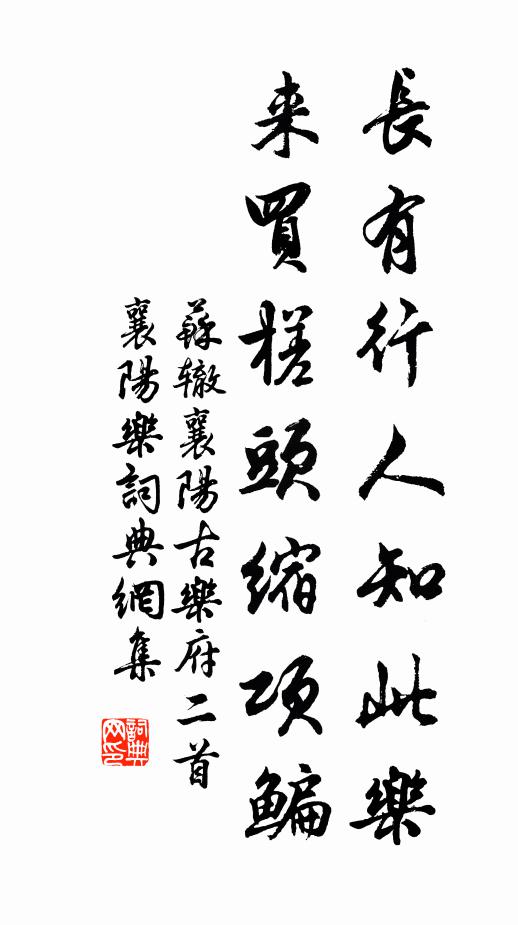 長有行人知此樂
来買槎頭縮項鳊
蘇辙襄陽古樂府二首
襄陽樂詞典網集
詞典網印